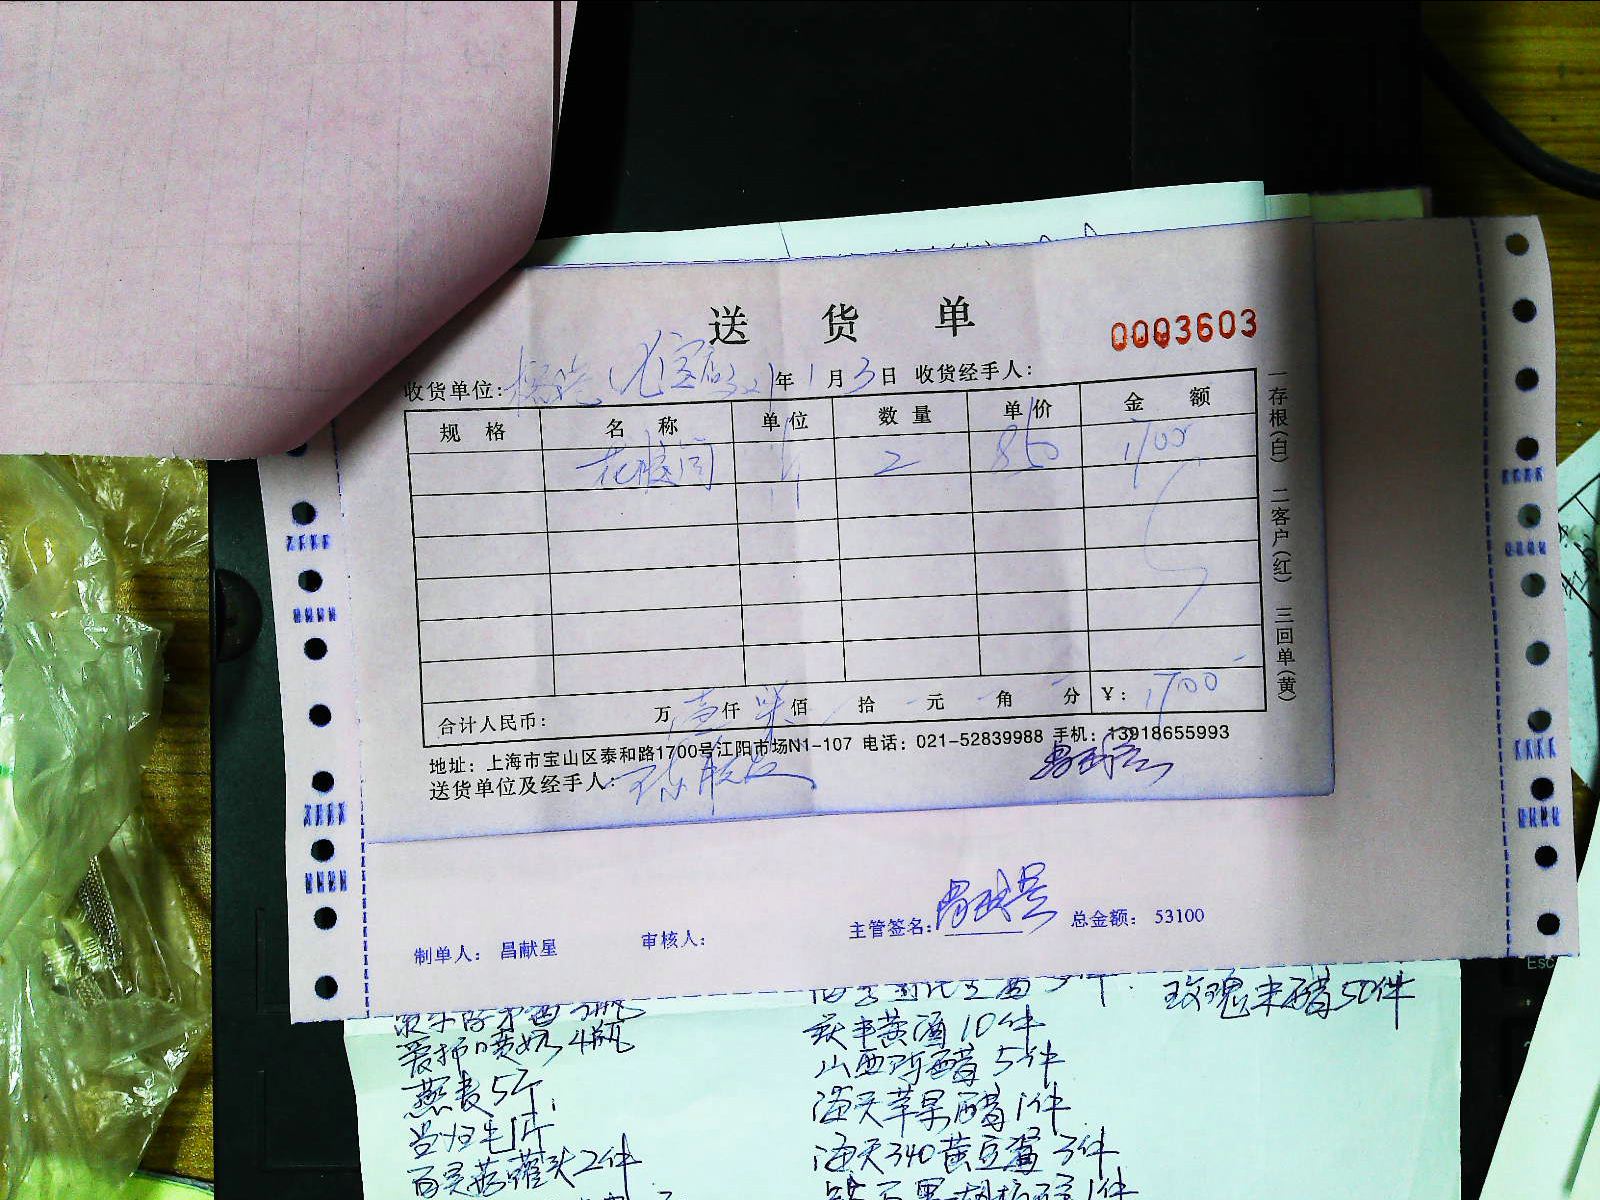 送 货 单
0003603
收货单位: 年 1 月 3 日 收货经手人:
规 格 名 称 单位 数 量 单价 金 额
花胶 2 850 1700
合计人民币: 万 壹 仟 柒 佰 拾 元 角 分 ¥: 1700
地址: 上海市宝山区泰和路1700号江阳市场N1-107 电话: 021-52839988 手机: 13918655993
送货单位及经手人:
一存根(白) 二客户(红) 三回单(黄)
制单人: 昌献星 审核人: 主管签名: 昌献星 总金额: 53100
玫瑰米醋50件
4瓶
黄酒10件
燕麦5个
山西陈醋5件
海天苹果醋1件
海天340黄豆酱3件
罐头2件
1件